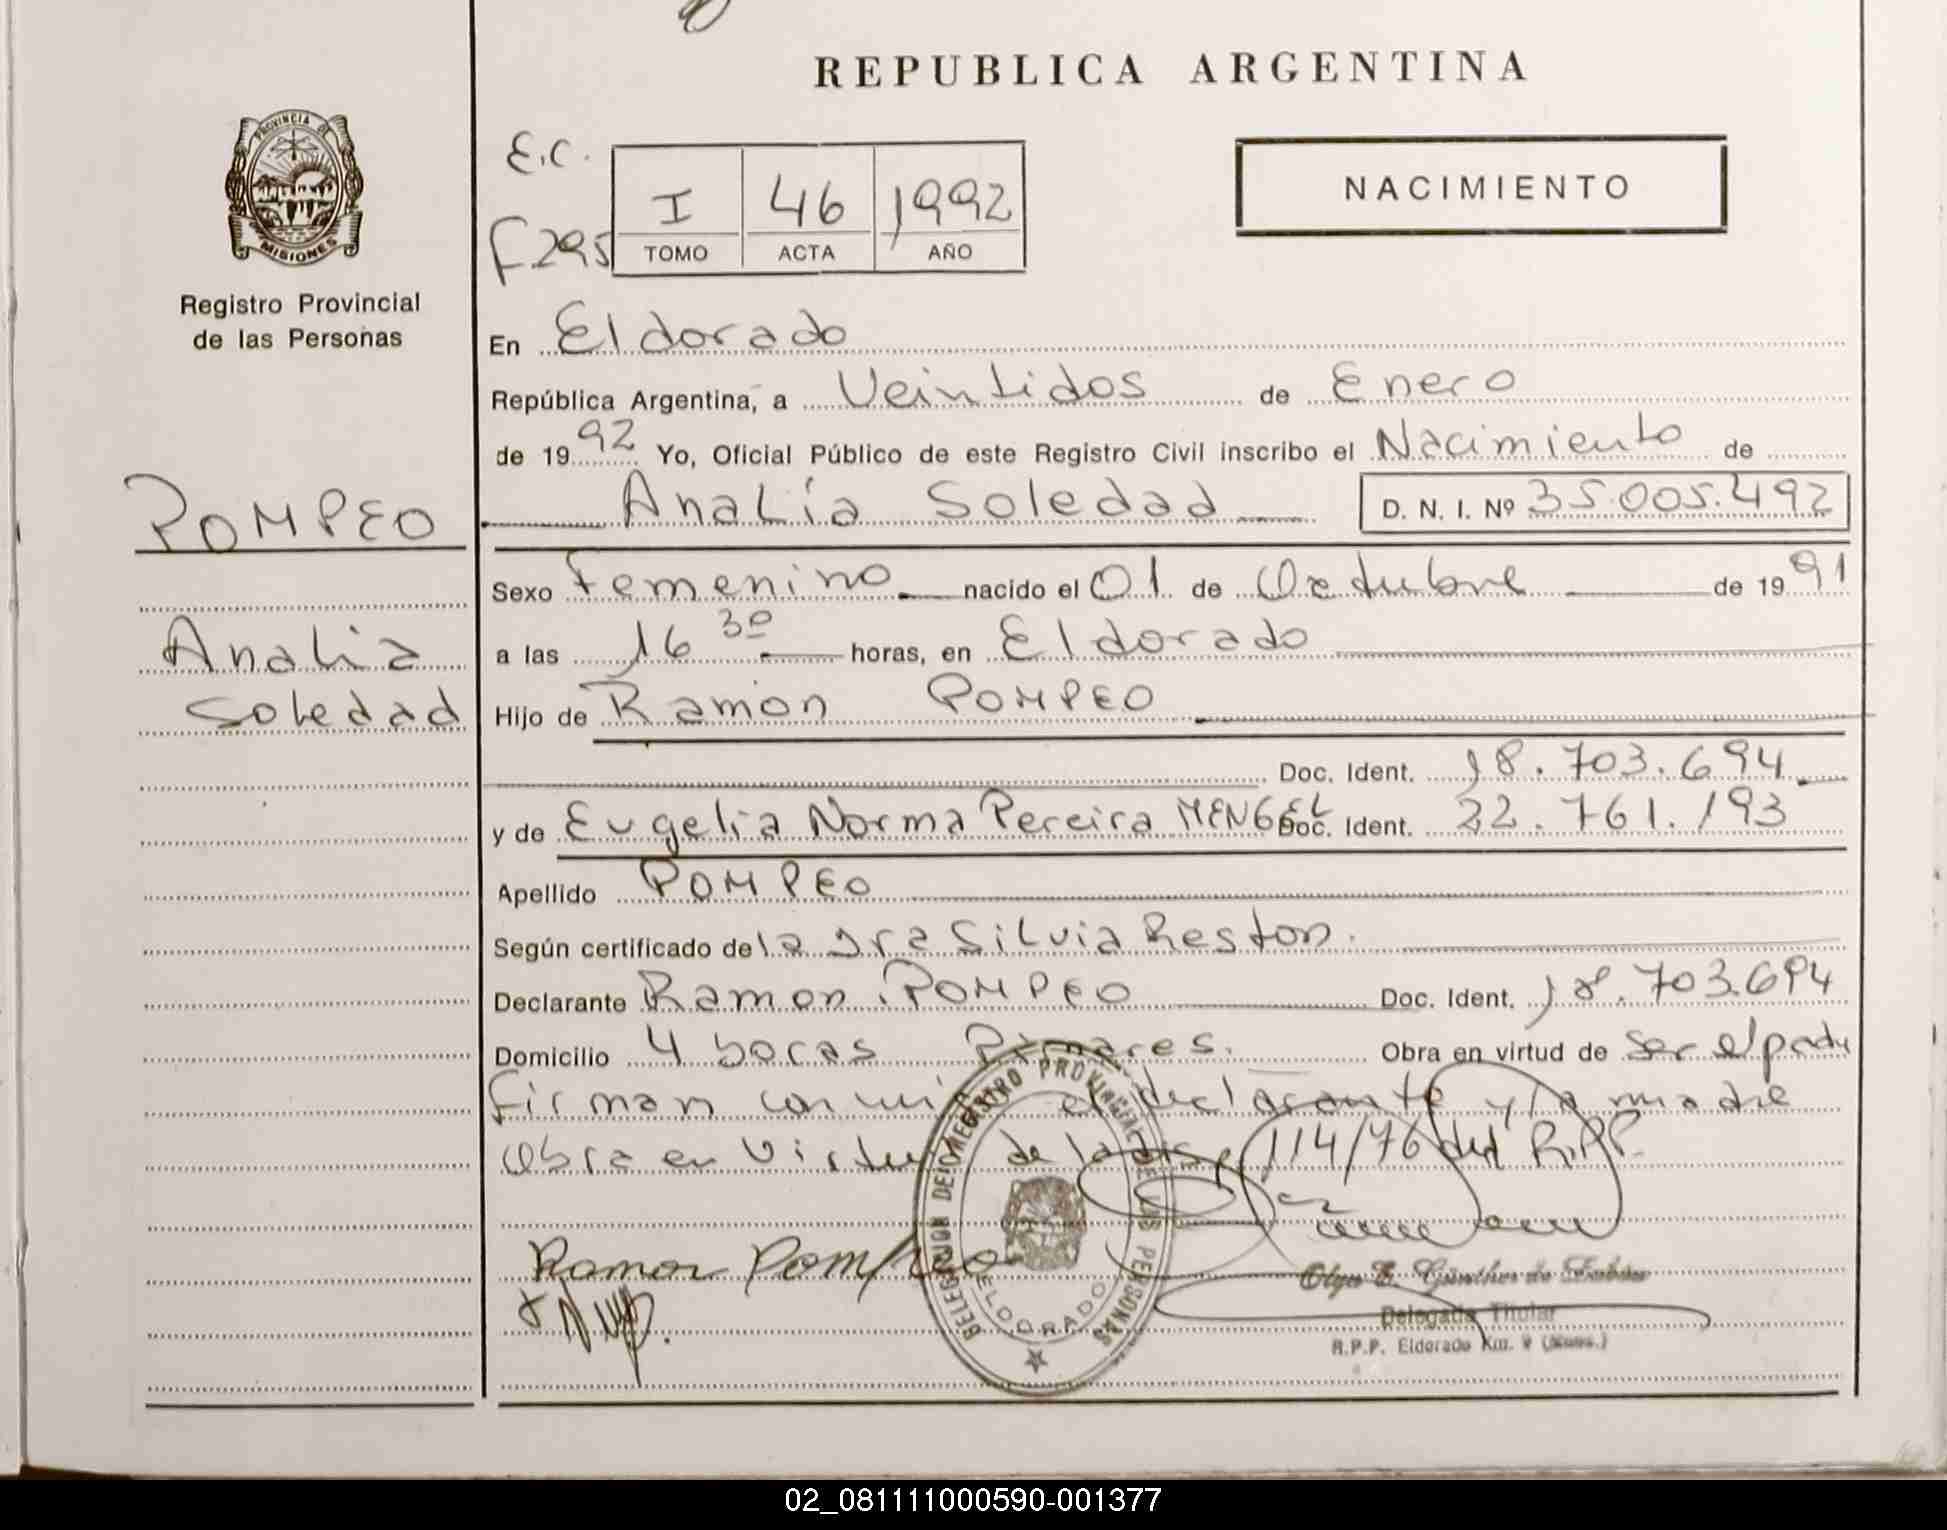 REPUBLICA ARGENTINA
PROVINCIA DE
MISIONES
Registro Provincial
de las Personas
E.C.
F 295
I 46 1992
TOMO ACTA AÑO
NACIMIENTO
En Eldorado
República Argentina, a Veintidos de Enero
de 1992 Yo, Oficial Público de este Registro Civil inscribo el Nacimiento de
Analía Soledad D. N. I. Nº 35.005.492
POMPEO
Analia
Soledad
Sexo Femenino nacido el 01 de Octubre de 1991
a las 16 30 horas, en Eldorado
Hijo de Ramón POMPEO
Doc. Ident. 18.703.694
y de Eugelia Norma Pereira MENGEL Doc. Ident. 22.761.193
Apellido POMPEO
Según certificado de la Silvia Reston.
Declarante Ramon POMPEO Doc. Ident. 18.703.694
Domicilio 4 bocas Pinares. Obra en virtud de ser el padre
firman con mi el declarante y la madre
Obra en Virtud de la 114/76 del R.P.P.
Ramon Pompeo
DELEGACION DEL REGISTRO PROVINCIAL DE LAS PERSONAS
ELDORADO
Olga E. Günther de
Delegada Titular
R.P.P. Eldorado Km. 9 (Mnes.)
02_081111000590-001377